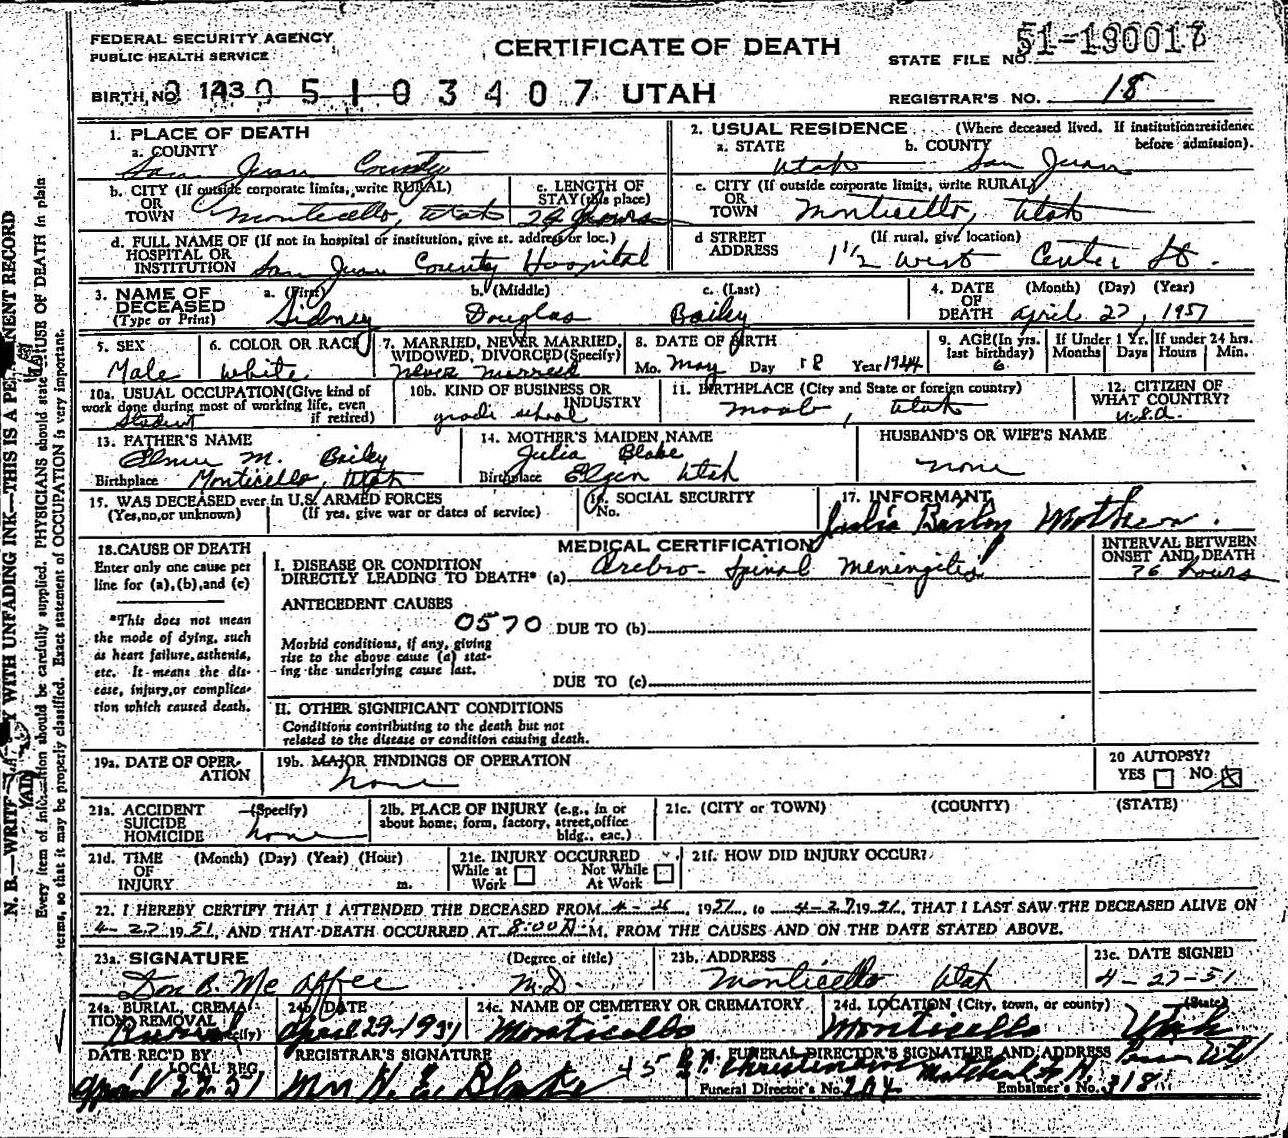 FEDERAL SECURITY AGENCY
PUBLIC HEALTH SERVICE
CERTIFICATE OF DEATH
STATE FILE NO. 51-190017
BIRTH NO. 143 0 5 1 0 3 4 0 7 UTAH
REGISTRAR'S NO. 18
1. PLACE OF DEATH
a. COUNTY
San Juan County
2. USUAL RESIDENCE (Where deceased lived. If institution: residence before admission).
a. STATE Utah b. COUNTY San Juan
b. CITY (If outside corporate limits, write RURAL)
OR
TOWN Monticello, Utah
c. LENGTH OF
STAY (this place)
hours
c. CITY (If outside corporate limits, write RURAL)
OR
TOWN Monticello, Utah
d. FULL NAME OF (If not in hospital or institution, give st. address or loc.)
HOSPITAL OR
INSTITUTION San Juan County Hospital
d STREET (If rural, give location)
ADDRESS 1 1/2 West Center St.
3. NAME OF DECEASED
(Type or Print)
a. (First) b. (Middle) c. (Last)
Sidney Douglas Bailey
4. DATE OF DEATH (Month) (Day) (Year)
April 27, 1951
5. SEX
Male
6. COLOR OR RACE
White
7. MARRIED, NEVER MARRIED,
WIDOWED, DIVORCED (Specify)
never married
8. DATE OF BIRTH
Mo. May Day 18 Year 1944
9. AGE (In yrs. last birthday)
6
If Under 1 Yr.
Months Days
If under 24 hrs.
Hours Min.
10a. USUAL OCCUPATION (Give kind of
work done during most of working life, even
if retired)
Student
10b. KIND OF BUSINESS OR
INDUSTRY
grade school
11. BIRTHPLACE (City and State or foreign country)
Moab, Utah
12. CITIZEN OF
WHAT COUNTRY?
U.S.A.
13. FATHER'S NAME
M. Bailey
Birthplace Monticello, Utah
14. MOTHER'S MAIDEN NAME
Julia Blake
Birthplace Elgin Utah
HUSBAND'S OR WIFE'S NAME
none
15. WAS DECEASED ever in U.S. ARMED FORCES
(Yes, no, or unknown) (If yes, give war or dates of service)
16. SOCIAL SECURITY
No.
17. INFORMANT
Julia Bailey Mother.
18. CAUSE OF DEATH
Enter only one cause per
line for (a), (b), and (c)
*This does not mean
the mode of dying, such
as heart failure, asthenia,
etc. It means the dis-
ease, injury, or complica-
tion which caused death.
MEDICAL CERTIFICATION
INTERVAL BETWEEN
ONSET AND DEATH
I. DISEASE OR CONDITION
DIRECTLY LEADING TO DEATH* (a) Cerebro-Spinal Meningitis
hours
ANTECEDENT CAUSES
0570 DUE TO (b)
Morbid conditions, if any, giving
rise to the above cause (a) stat-
ing the underlying cause last.
DUE TO (c)
II. OTHER SIGNIFICANT CONDITIONS
Conditions contributing to the death but not
related to the disease or condition causing death.
19a. DATE OF OPER-
ATION
19b. MAJOR FINDINGS OF OPERATION
none
20 AUTOPSY?
YES NO
21a. ACCIDENT (Specify)
SUICIDE
HOMICIDE none
21b. PLACE OF INJURY (e.g., in or
about home, form, factory, street, office
bldg., eac.)
21c. (CITY or TOWN) (COUNTY) (STATE)
21d. TIME (Month) (Day) (Year) (Hour)
OF
INJURY m.
21e. INJURY OCCURRED
While at Work Not While At Work
21f. HOW DID INJURY OCCUR?
22. I HEREBY CERTIFY THAT I ATTENDED THE DECEASED FROM 1951, to 4-27 1951, THAT I LAST SAW THE DECEASED ALIVE ON
4-27 1951, AND THAT DEATH OCCURRED AT 8:00 M., FROM THE CAUSES AND ON THE DATE STATED ABOVE.
23a. SIGNATURE (Degree or title)
Don B. McAffee M.D.
23b. ADDRESS
Monticello Utah
23c. DATE SIGNED
4-27-51
24a. BURIAL, CREMA-
TION, REMOVAL (Specify)
Burial
24b. DATE
April 29-1951
24c. NAME OF CEMETERY OR CREMATORY
Monticello
24d. LOCATION (City, town, or county) (State)
Monticello Utah
DATE REC'D BY
LOCAL REG.
April 27-51
REGISTRAR'S SIGNATURE
Mrs H. E. Blake
FUNERAL DIRECTOR'S SIGNATURE AND ADDRESS
Funeral Director's No. 204 Embalmer's No. 318
Every item of information should be carefully supplied. PHYSICIANS should state CAUSE OF DEATH in plain
terms, so that it may be properly classified. Exact statement of OCCUPATION is very important.